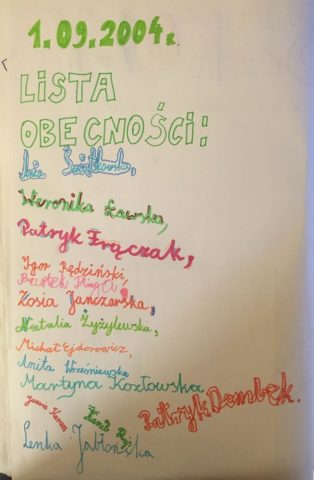 1.09.2004r.
LISTA
OBECNOŚCI:
Ania
Weronika Ławska,
Patryk Frączak,
Igor Rędziński,
Bartek
Zosia Janczarska,
Natalia Żyżylewska,
Michał Ejdorowicz,
Anita Wrześniewska
Martyna Kozłowska
Patryk Dembek.
Joana
Kamil
Lenka Jabłonicka